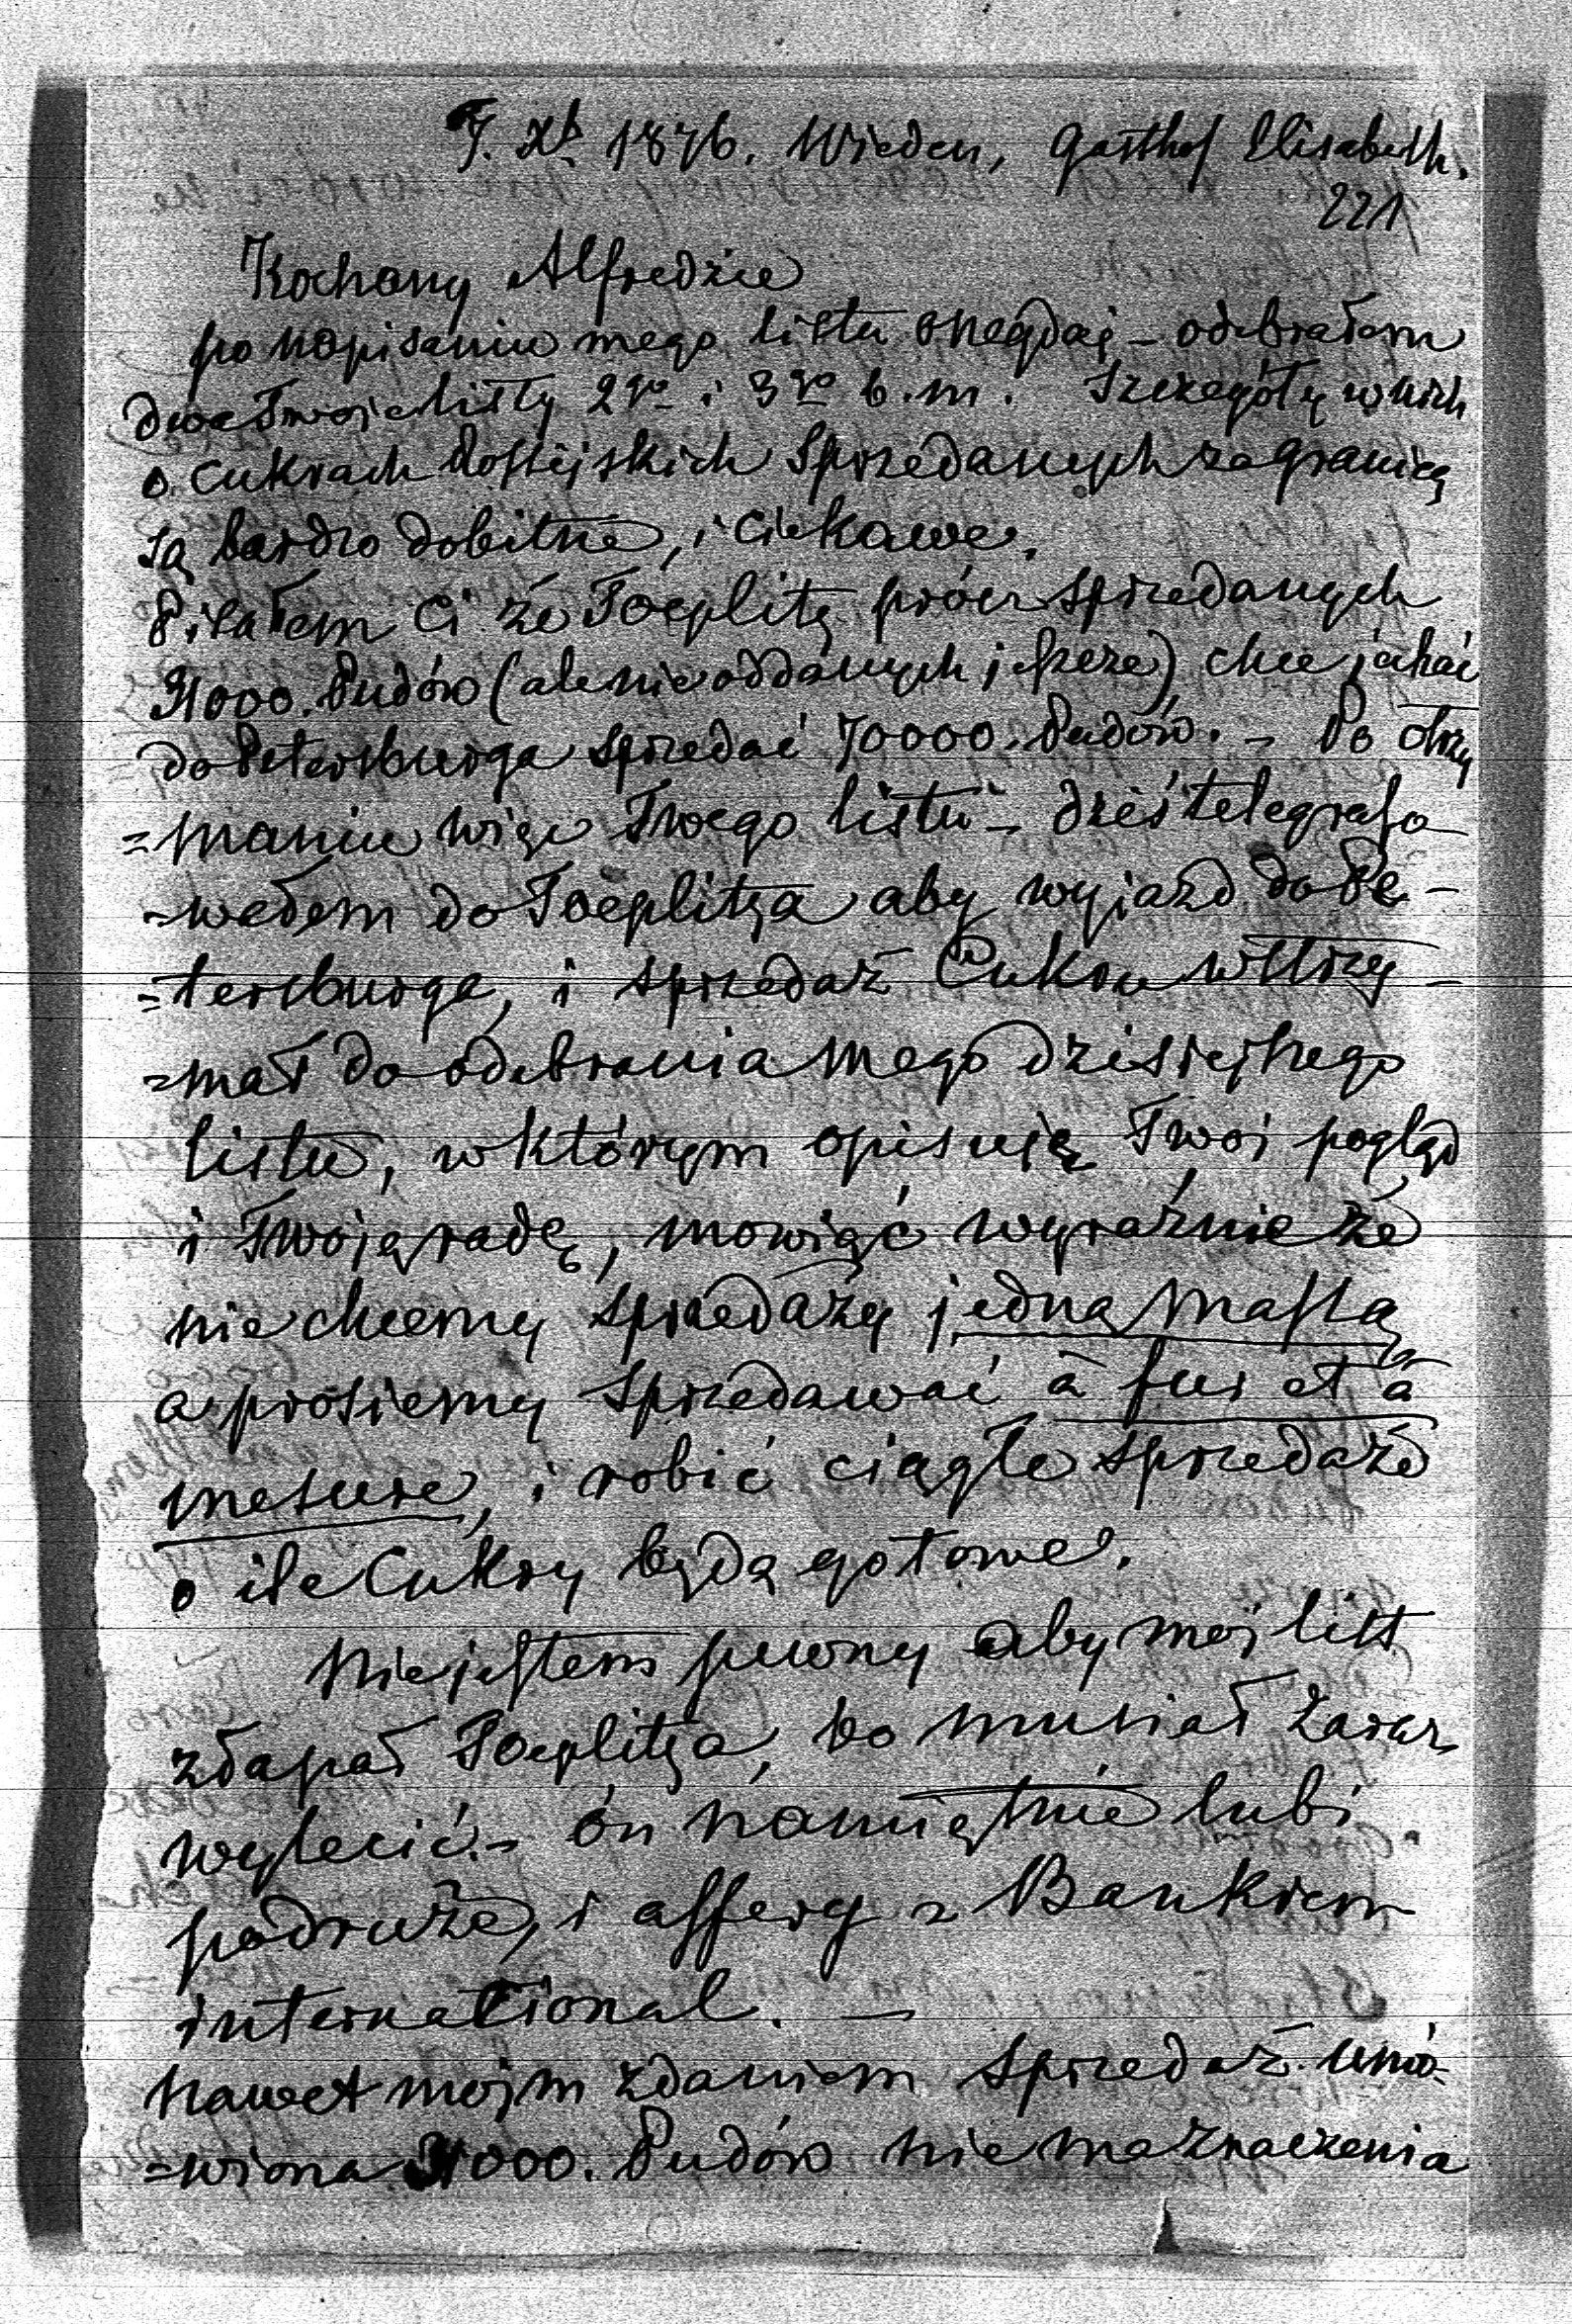 7. Xb 1876. Wieden, Gasthof Elisabeth.
221
Kochany Alfredzie
po napisaniu mego listu onegdaj – odebrałem
dwa Twoje listy 2go i 3go b. m. Szczegóły w nich
o Cukrach Rossyjskich Sprzedanych zagranicą
są bardzo dobitne, i Ciekawe.
Pisałem Ci że Toeplitz prócz sprzedanych
31000. Pudów (ale nie oddanych jeszcze) chce jechać
do Petersburga sprzedać 70000. Pudów. – Po otrzy
=maniu więc Twego listu – dziś telegrafo
=wałem do Toeplitza aby wyjazd do Pe-
=tersburga, i sprzedaż Cukru wstrzy-
=mał do odebrania mego dzisiejszego
listu, w którym opisuję Twoj pogląd
i Twoją radę, mówiąc wyraźnie że
nie chcemy sprzedaży jedną massą
a prosiemy sprzedawać à fur et à
mesure, i robić ciągłe sprzedaże
o ile Cukry będą gotowe.
Nie jestem pewny aby mój list
złapał Toeplitza, bo musiał zaraz
wylecić. – on namiętnie lubi
podróże, i affery z Bankiem
international. –
nawet mojm zdaniem sprzedaż umó-
=wiona 31000. Pudów nie ma znaczenia